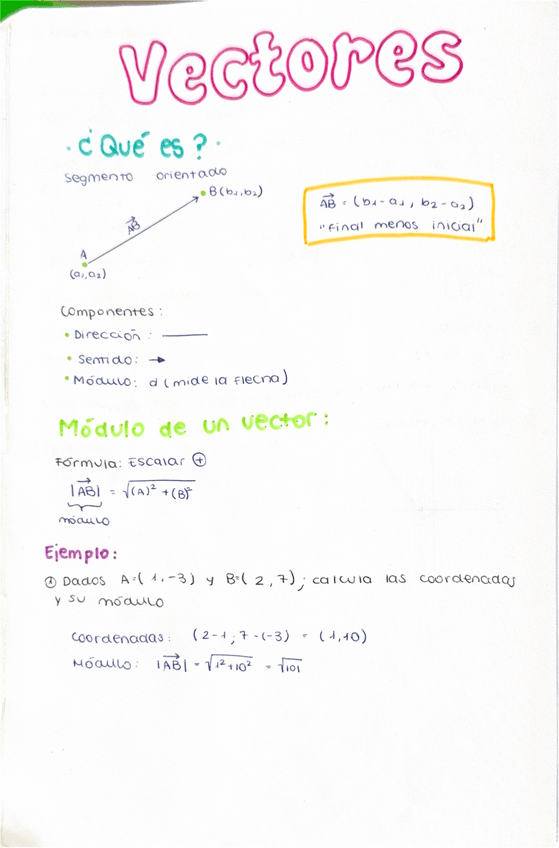 Vectores
· ¿Qué es? ·
segmento orientado
B(b₁,b₂)
AB = (b₁-a₁, b₂-a₂)
"final menos inicial"
AB
A
(a₁,a₂)
Componentes:
• Dirección: ——
• Sentido: →
• Módulo: d (mide la flecha)
Módulo de un vector:
Fórmula: Escalar ⊕
|AB| = √(A)² + (B)²
módulo
Ejemplo:
① Dados A=(1,-3) y B=(2,7); calcula las coordenadas
y su módulo
Coordenadas: (2-1; 7-(-3) = (1,10)
Módulo: |AB| = √1²+10² = √101